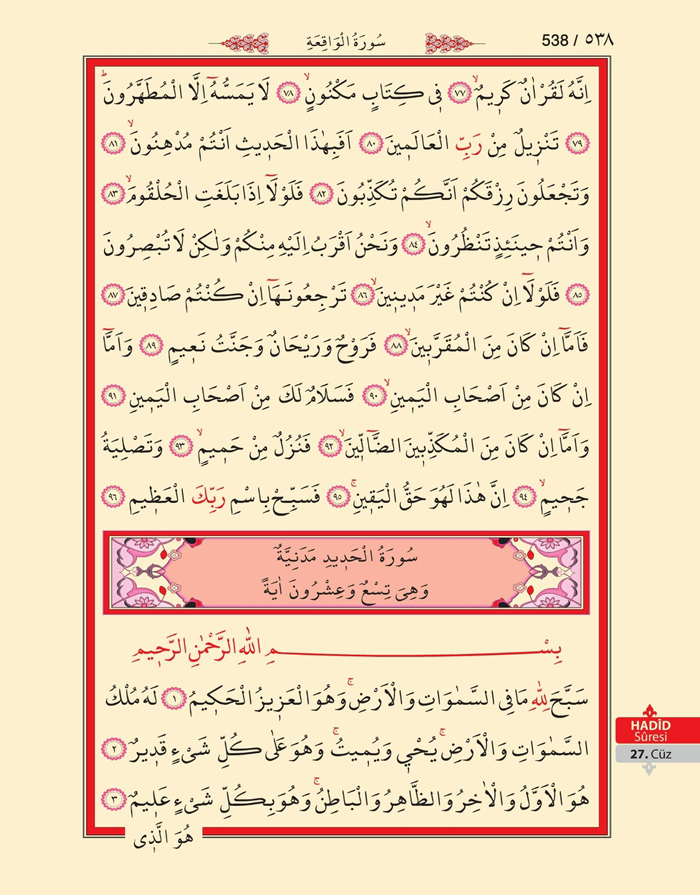 538 / ٥٣٨
سُورَةُ الْوَاقِعَةِ
اِنَّهُ لَقُرْاٰنٌ كَر۪يمٌۙ ﴿٧٧﴾ ف۪ي كِتَابٍ مَكْنُونٍۙ ﴿٧٨﴾ لَا يَمَسُّهُٓ اِلَّا الْمُطَهَّرُونَۜ
﴿٧٩﴾ تَنْز۪يلٌ مِنْ رَبِّ الْعَالَم۪ينَ ﴿٨٠﴾ اَفَبِهٰذَا الْحَد۪يثِ اَنْتُمْ مُدْهِنُونَۙ ﴿٨١﴾
وَتَجْعَلُونَ رِزْقَكُمْ اَنَّكُمْ تُكَذِّبُونَ ﴿٨٢﴾ فَلَوْلَٓا اِذَا بَلَغَتِ الْحُلْقُومَۙ ﴿٨٣﴾
وَاَنْتُمْ ح۪ينَئِذٍ تَنْظُرُونَۙ ﴿٨٤﴾ وَنَحْنُ اَقْرَبُ اِلَيْهِ مِنْكُمْ وَلٰكِنْ لَا تُبْصِرُونَ
﴿٨٥﴾ فَلَوْلَٓا اِنْ كُنْتُمْ غَيْرَ مَد۪ين۪ينَۙ ﴿٨٦﴾ تَرْجِعُونَهَٓا اِنْ كُنْتُمْ صَادِق۪ينَ ﴿٨٧﴾
فَاَمَّٓا اِنْ كَانَ مِنَ الْمُقَرَّب۪ينَۙ ﴿٨٨﴾ فَرَوْحٌ وَرَيْحَانٌ وَجَنَّتُ نَع۪يمٍ ﴿٨٩﴾ وَاَمَّٓا
اِنْ كَانَ مِنْ اَصْحَابِ الْيَم۪ينِۙ ﴿٩٠﴾ فَسَلَامٌ لَكَ مِنْ اَصْحَابِ الْيَم۪ينِ ﴿٩١﴾
وَاَمَّٓا اِنْ كَانَ مِنَ الْمُكَذِّب۪ينَ الضَّٓالّ۪ينَۙ ﴿٩٢﴾ فَنُزُلٌ مِنْ حَم۪يمٍۙ ﴿٩٣﴾ وَتَصْلِيَةُ
جَح۪يمٍۙ ﴿٩٤﴾ اِنَّ هٰذَا لَهُوَ حَقُّ الْيَق۪ينِۚ ﴿٩٥﴾ فَسَبِّحْ بِاسْمِ رَبِّكَ الْعَظ۪يمِ ﴿٩٦﴾
سُورَةُ الْحَد۪يدِ مَدَنِيَّةٌ
وَهِيَ تِسْعٌ وَعِشْرُونَ اٰيَةً
بِسْمِ اللّٰهِ الرَّحْمٰنِ الرَّح۪يمِ
سَبَّحَ لِلّٰهِ مَا فِي السَّمٰوَاتِ وَالْاَرْضِۚ وَهُوَ الْعَز۪يزُ الْحَك۪يمُ ﴿١﴾ لَهُ مُلْكُ
السَّمٰوَاتِ وَالْاَرْضِۚ يُحْي۪ وَيُم۪يتُۚ وَهُوَ عَلٰى كُلِّ شَيْءٍ قَد۪يرٌ ﴿٢﴾
هُوَ الْاَوَّلُ وَالْاٰخِرُ وَالظَّاهِرُ وَالْبَاطِنُۚ وَهُوَ بِكُلِّ شَيْءٍ عَل۪يمٌ ﴿٣﴾
هُوَ الَّذ۪ي
HADÎD
Sûresi
27. Cüz